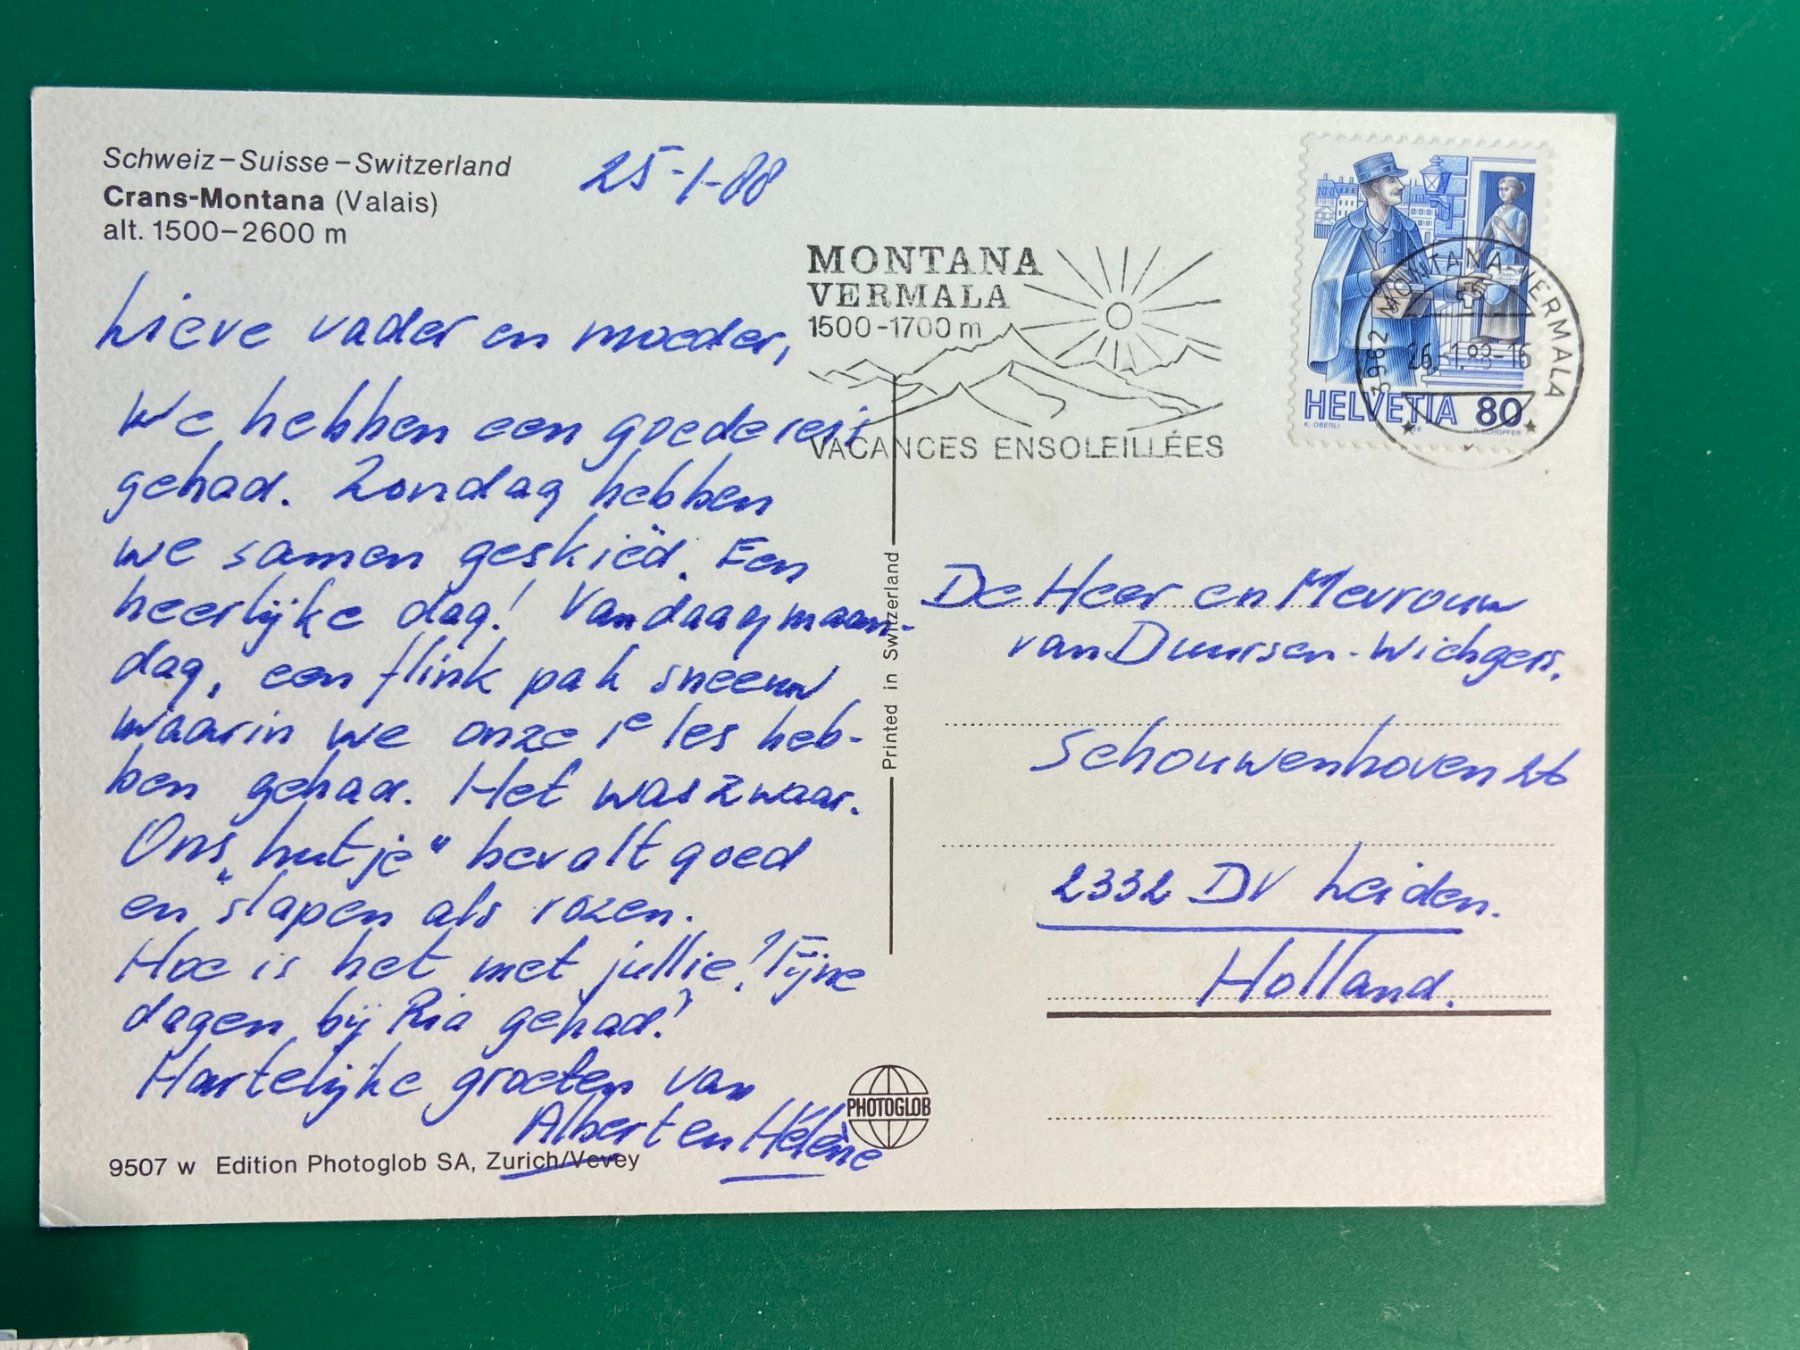 Schweiz–Suisse–Switzerland
Crans-Montana (Valais)
alt. 1500–2600 m
25-1-88
Lieve vader en moeder,
We hebben een goede reis
gehad. Zondag hebben
we samen geskiëd. Een
heerlijke dag! Vandaag maan-
dag, een flink pak sneeuw
waarin we onze 1e les heb-
ben gehad. Het was zwaar.
Ons „hutje" bevalt goed
en slapen als rozen.
Hoe is het met jullie? Fijne
dagen bij Ria gehad?
Hartelijke groeten van
Albert en Hélène
9507 w Edition Photoglob SA, Zurich/Vevey
PHOTOGLOB
Printed in Switzerland
MONTANA
VERMALA
1500-1700 m
VACANCES ENSOLEILLÉES
HELVETIA 80
K. OBERLI
3962 MONTANA-VERMALA
26.-1.88-16
De Heer en Mevrouw
van Duursen-Wichgers.
Schouwenhoven 26
2332 DV Leiden.
Holland.